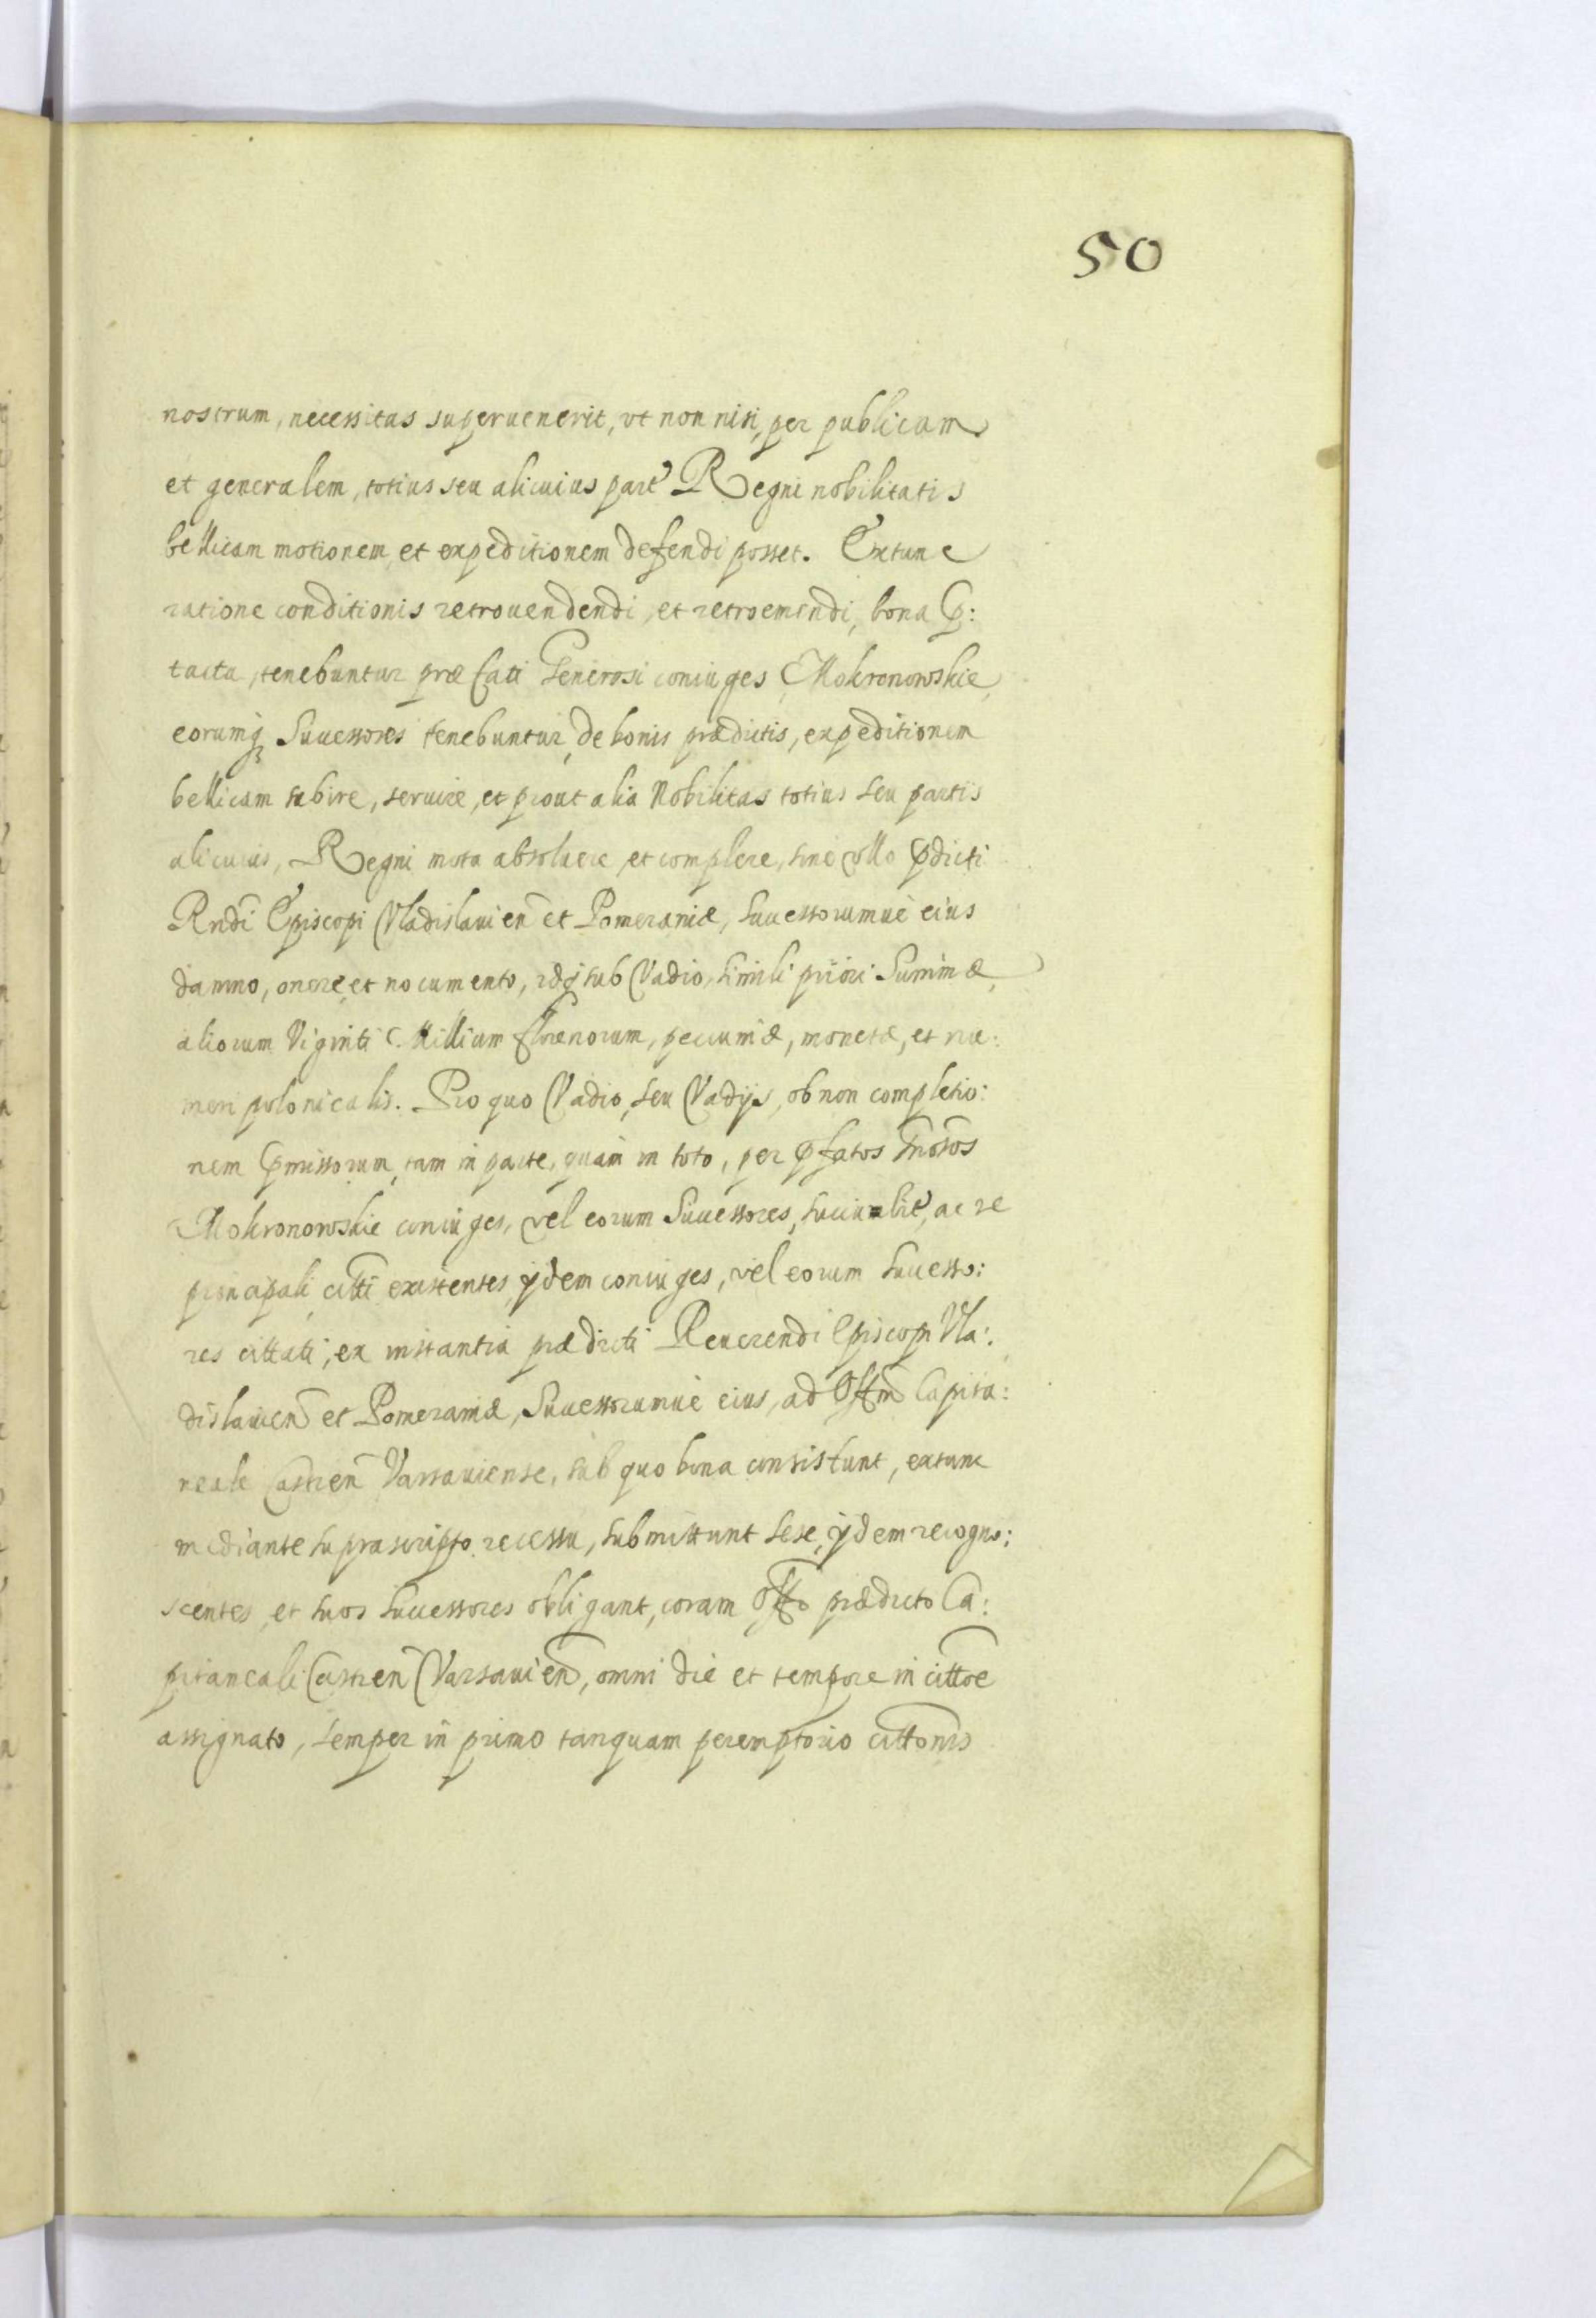 50
nostrum, necessitas superuenerit, vt non nisi, per publicam
et generalem, totius seu alicuius part Regni nobilitatis
bellicam motionem, et expeditionem defendi posset. Extunc
ratione conditionis retrouendendi, et retroemendi, bona p:
tacta, tenebuntur præfati Generosi coniuges Mokronowskie,
eorumq Successores tenebuntur, de bonis prædictis, expeditionem
bellicam subire, seruire, et prout alia Nobilitas totius seu partis
alicuius, Regni mota absoluere et complere, sine vllo pdicti
Rndi Episcopi Vladislauien et Pomeraniæ, Successorumue eius
damno, onere, et nocumento, idq sub Vadio, simili priori Summæ,
aliorum Viginti Millium florenorum, pecuniæ, monetæ, et nu:
meri polonicalis. Pro quo Vadio, seu Vadijs, ob non completio:
nem pmissorum, tam in parte, quàm in toto, per pfatos Gnosos
Mokronowskie coniuges, vel eorum Successores, succubit, ac re
principali citti existentes, ijdem coniuges, vel eorum Successo:
res cittati, ex instantia prædicti Reuerendi Episcopi Vla:
dislauien et Pomeraniæ, Successorumue eius, ad Offm Capita:
neale Castren Varsauiense, sub quo bona consistunt, extunc
mediante suprascripto recessu, submittunt sese, ijdem recogno:
scentes, et suos Successores obligant, coram Offo prædicto Ca:
pitaneali Castren Varsauien, omni die et tempore in cittoe
assignato, semper in primo tanquam peremptorio cittonis